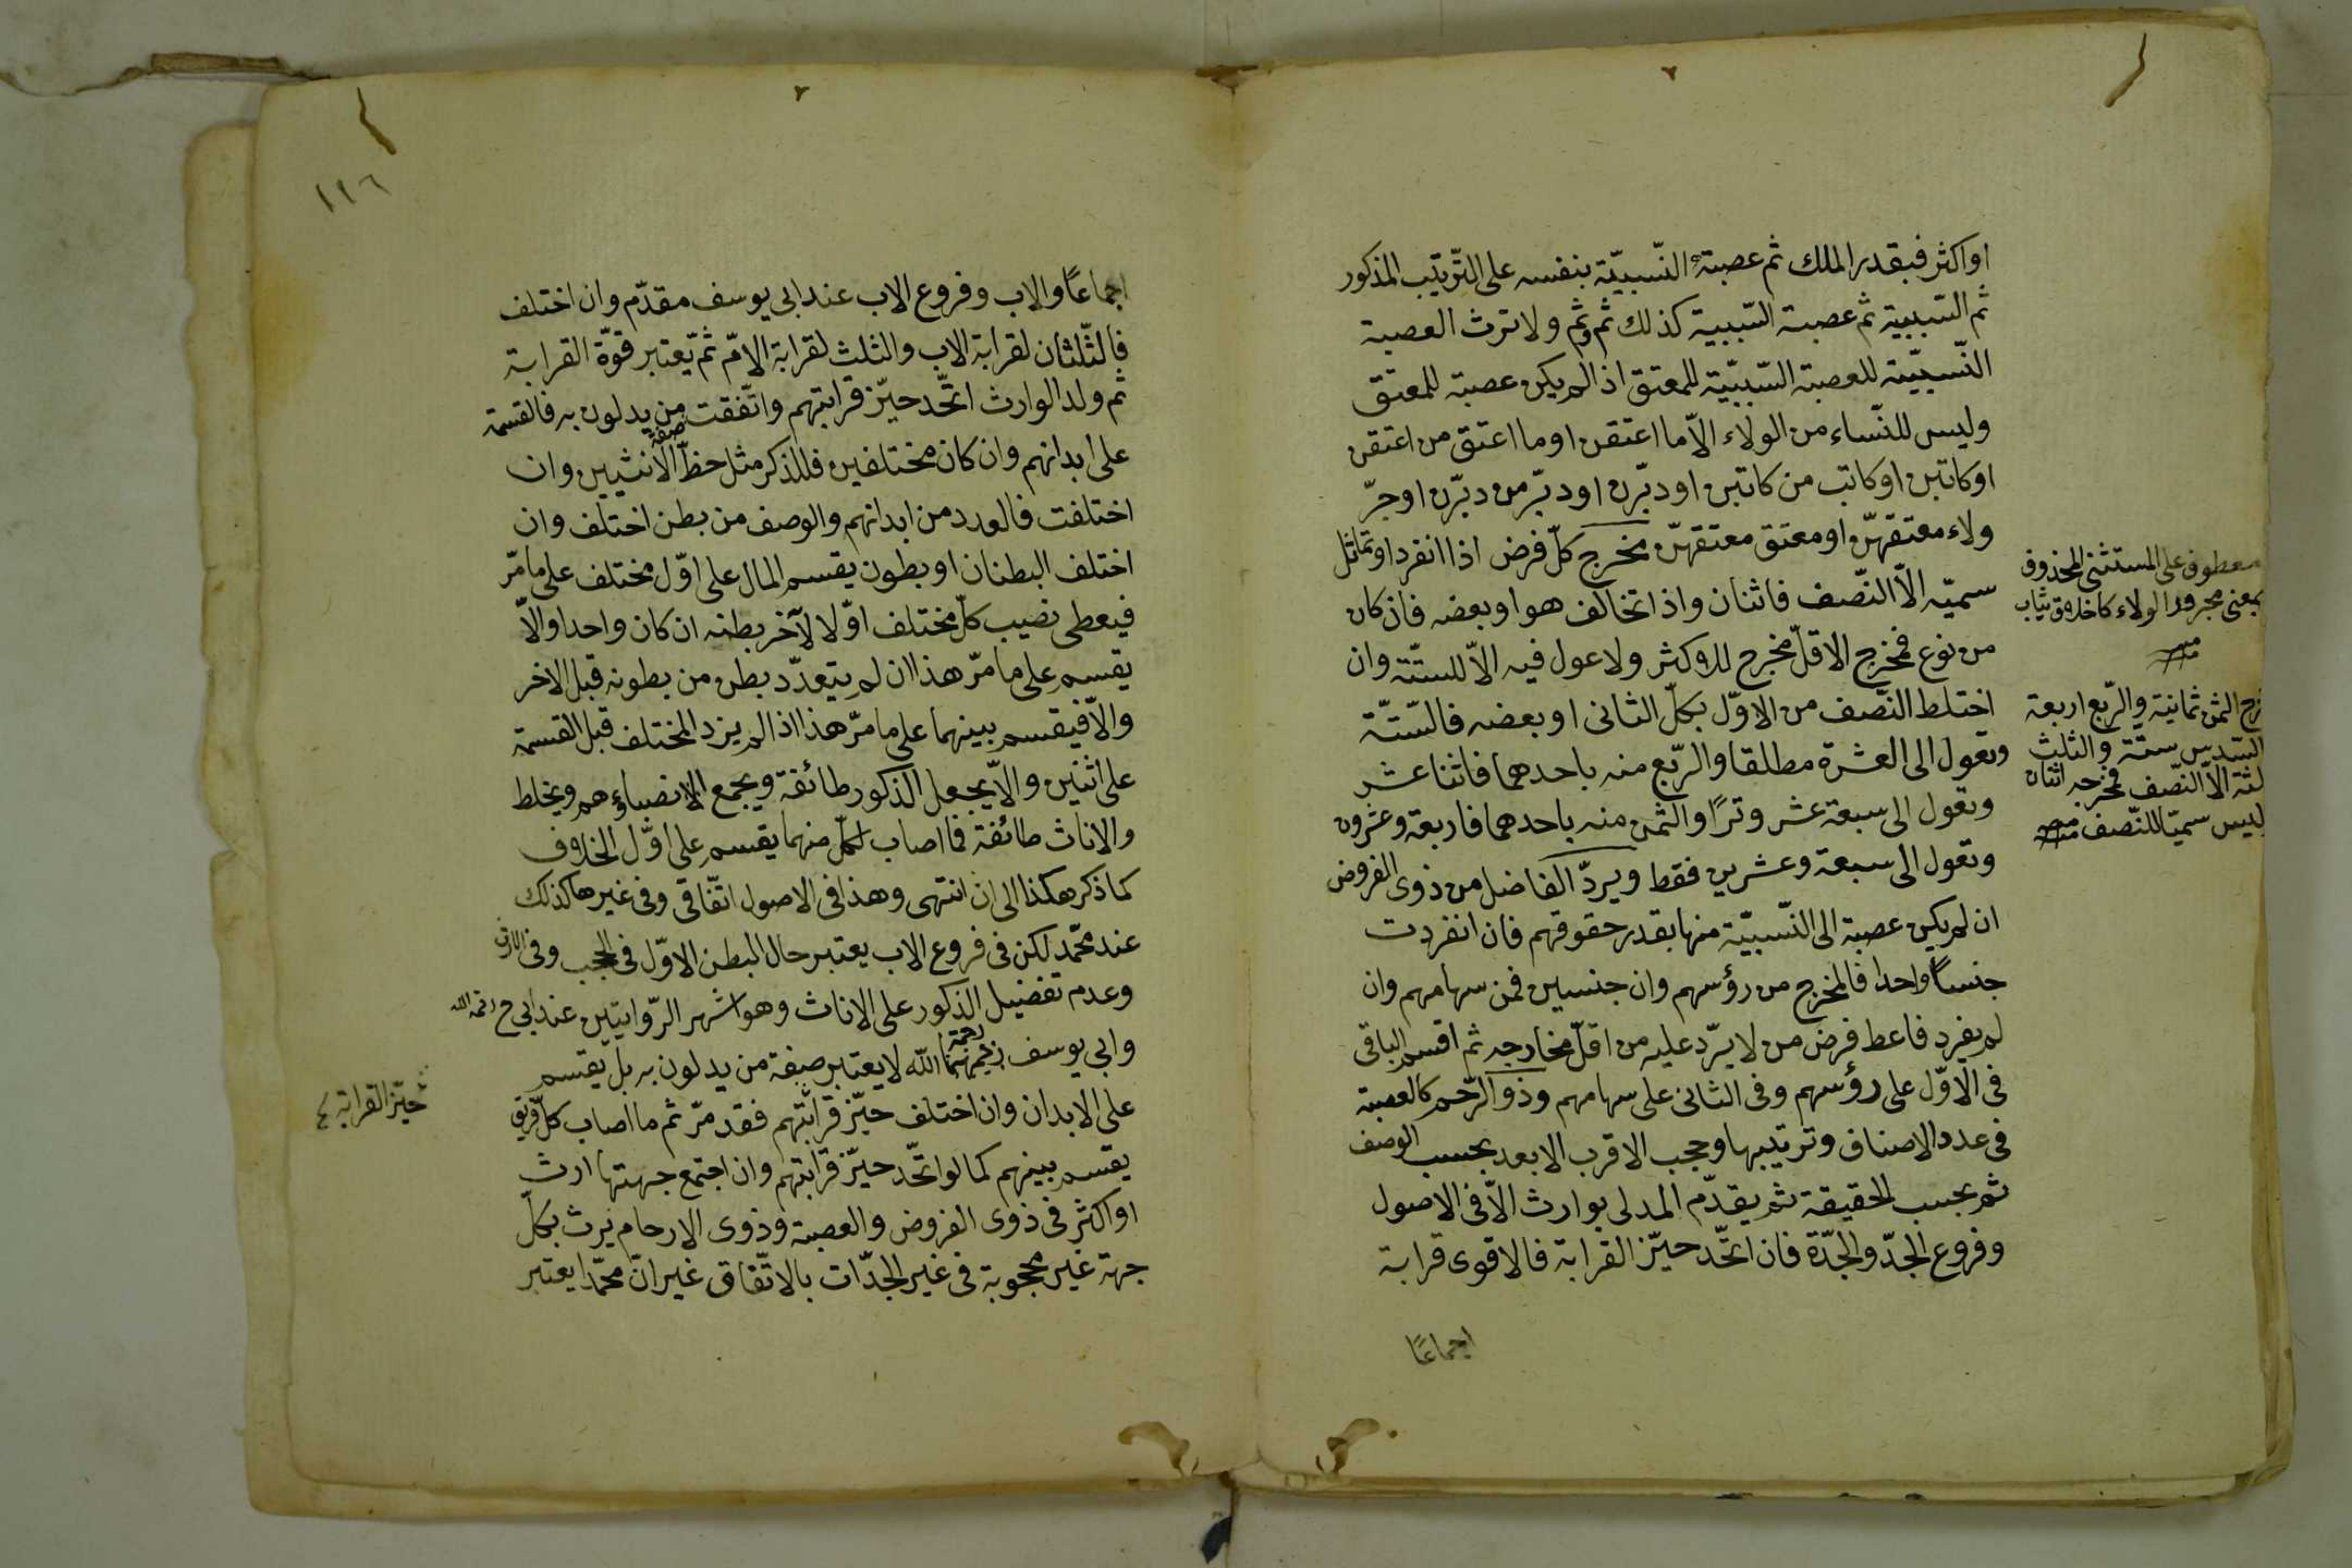 اواكثر فبقدر الملك ثم عصبة النّسبيّة بنفسه على التّرتيب المذكور
ثم السّببية ثم عصبة السّببية كذلك ثم وثم ولا ترث العصبة
النّسبيّة للعصبة السّببيّة للمعتق اذا لم يكن عصبة للمعتق
وليس للنّساء من الولاء الاّ ما اعتقن او ما اعتق من اعتقن
او كاتبن او كاتب من كاتبن او دبّرن او دبّر من دبّرن او جرّ
ولاء معتقهنّ او معتق معتقهنّ مخرج كلّ فرض اذا انفرد او تماثل
سميّه الاّ النّصف فاثنان واذا تخالف هو او بعضه فان كان
من نوع فمخرج الاقلّ مخرج للاكثر ولا عول فيه الاّ للستّة وان
اختلط النّصف من الاوّل بكلّ الثانى او بعضه فالستّة
وتعول الى العشرة مطلقا والرّبع منه باحدهما فاثنا عشر
وتعول الى سبعة عشر وترًا والثّمن منه باحدهما فاربعة وعشرون
وتعول الى سبعة وعشرين فقط ويردّ الفاضل من ذوى الفروض
ان لم يكن عصبة الى النّسبيّة منها بقدر حقوقهم فان انفردت
جنسًا واحدا فالمخرج من رؤسهم وان جنسين فمن سهامهم وان
لم يفرد فاعط فرض من لا يردّ عليه من اقلّ مخارجه ثم اقسم الباقى
فى الاوّل على رؤسهم وفى الثانى على سهامهم وذو الرّحم كالعصبة
فى عدد الاصناف وترتيبها وحجب الاقرب الابعد بحسب الوصف
ثم بحسب الحقيقة ثم يقدّم المدلى بوارث الاّ فى الاصول
وفروع الجدّ والجدّة فان اتّحد حيّز القرابة فالاقوى قرابة
اجماعًا
معطوف على المستثنى المحذوف
بمعنى مجرور الولاء كاخلاق ثياب
الثمن ثمانية والرّبع اربعة
السّدس ستّة والثلث
الاّ النّصف فمخرجه اثنان
ليس سميّا للنّصف
١١٦
اجماعًا والاب وفروع الاب عند ابى يوسف مقدّم وان اختلف
فالثّلثان لقرابة الاب والثلث لقرابة الامّ ثمّ يعتبر قوّة القرابة
ثم ولد الوارث اتّحد حيّز قرابتهم واتّفقت صفة من يدلون به فالقسمة
على ابدانهم وان كان مختلفين فللذكر مثل حظّ الانثيين وان
اختلفت فالعدد من ابدانهم والوصف من بطن اختلف وان
اختلف البطنان او بطون يقسم المال على اوّل مختلف على ما مرّ
فيعطى نصيب كلّ مختلف اوّلا لآخر بطنه ان كان واحدا والاّ
يقسم على ما مرّ هذا ان لم يتعدّد بطن من بطونه قبل الاخر
والاّ فيقسم بينهما على ما مرّ هذا اذا لم يزد المختلف قبل القسمة
على اثنين والاّ يجعل الذكور طائفة ويجمع انصباؤهم ويخلط
والاناث طائفة فما اصاب لكلّ منهما يقسم على اوّل الخلاف
كما ذكر هكذا الى ان انتهى وهذا فى الاصول اتّفاقى وفى غيرها كذلك
عند محمّد لكن فى فروع الاب يعتبر حال البطن الاوّل فى الحجب وفى الارث
وعدم تفضيل الذكور على الاناث وهو اشهر الرّوايتين عند ابى ح رحمه الله
وابى يوسف رحمهما الله لا يعتبر صفة من يدلون به بل يقسم
على الابدان وان اختلف حيّز قرابتهم فقد مرّ ثم ما اصاب كلّ فريق
يقسم بينهم كما لو اتّحد حيّز قرابتهم وان اجتمع جهتها ارث
او اكثر فى ذوى الفروض والعصبة وذوى الارحام يرث بكلّ
جهة غير محجوبة فى غير الجدّات بالاتّفاق غير انّ محمّدا يعتبر
حيّز القرابة